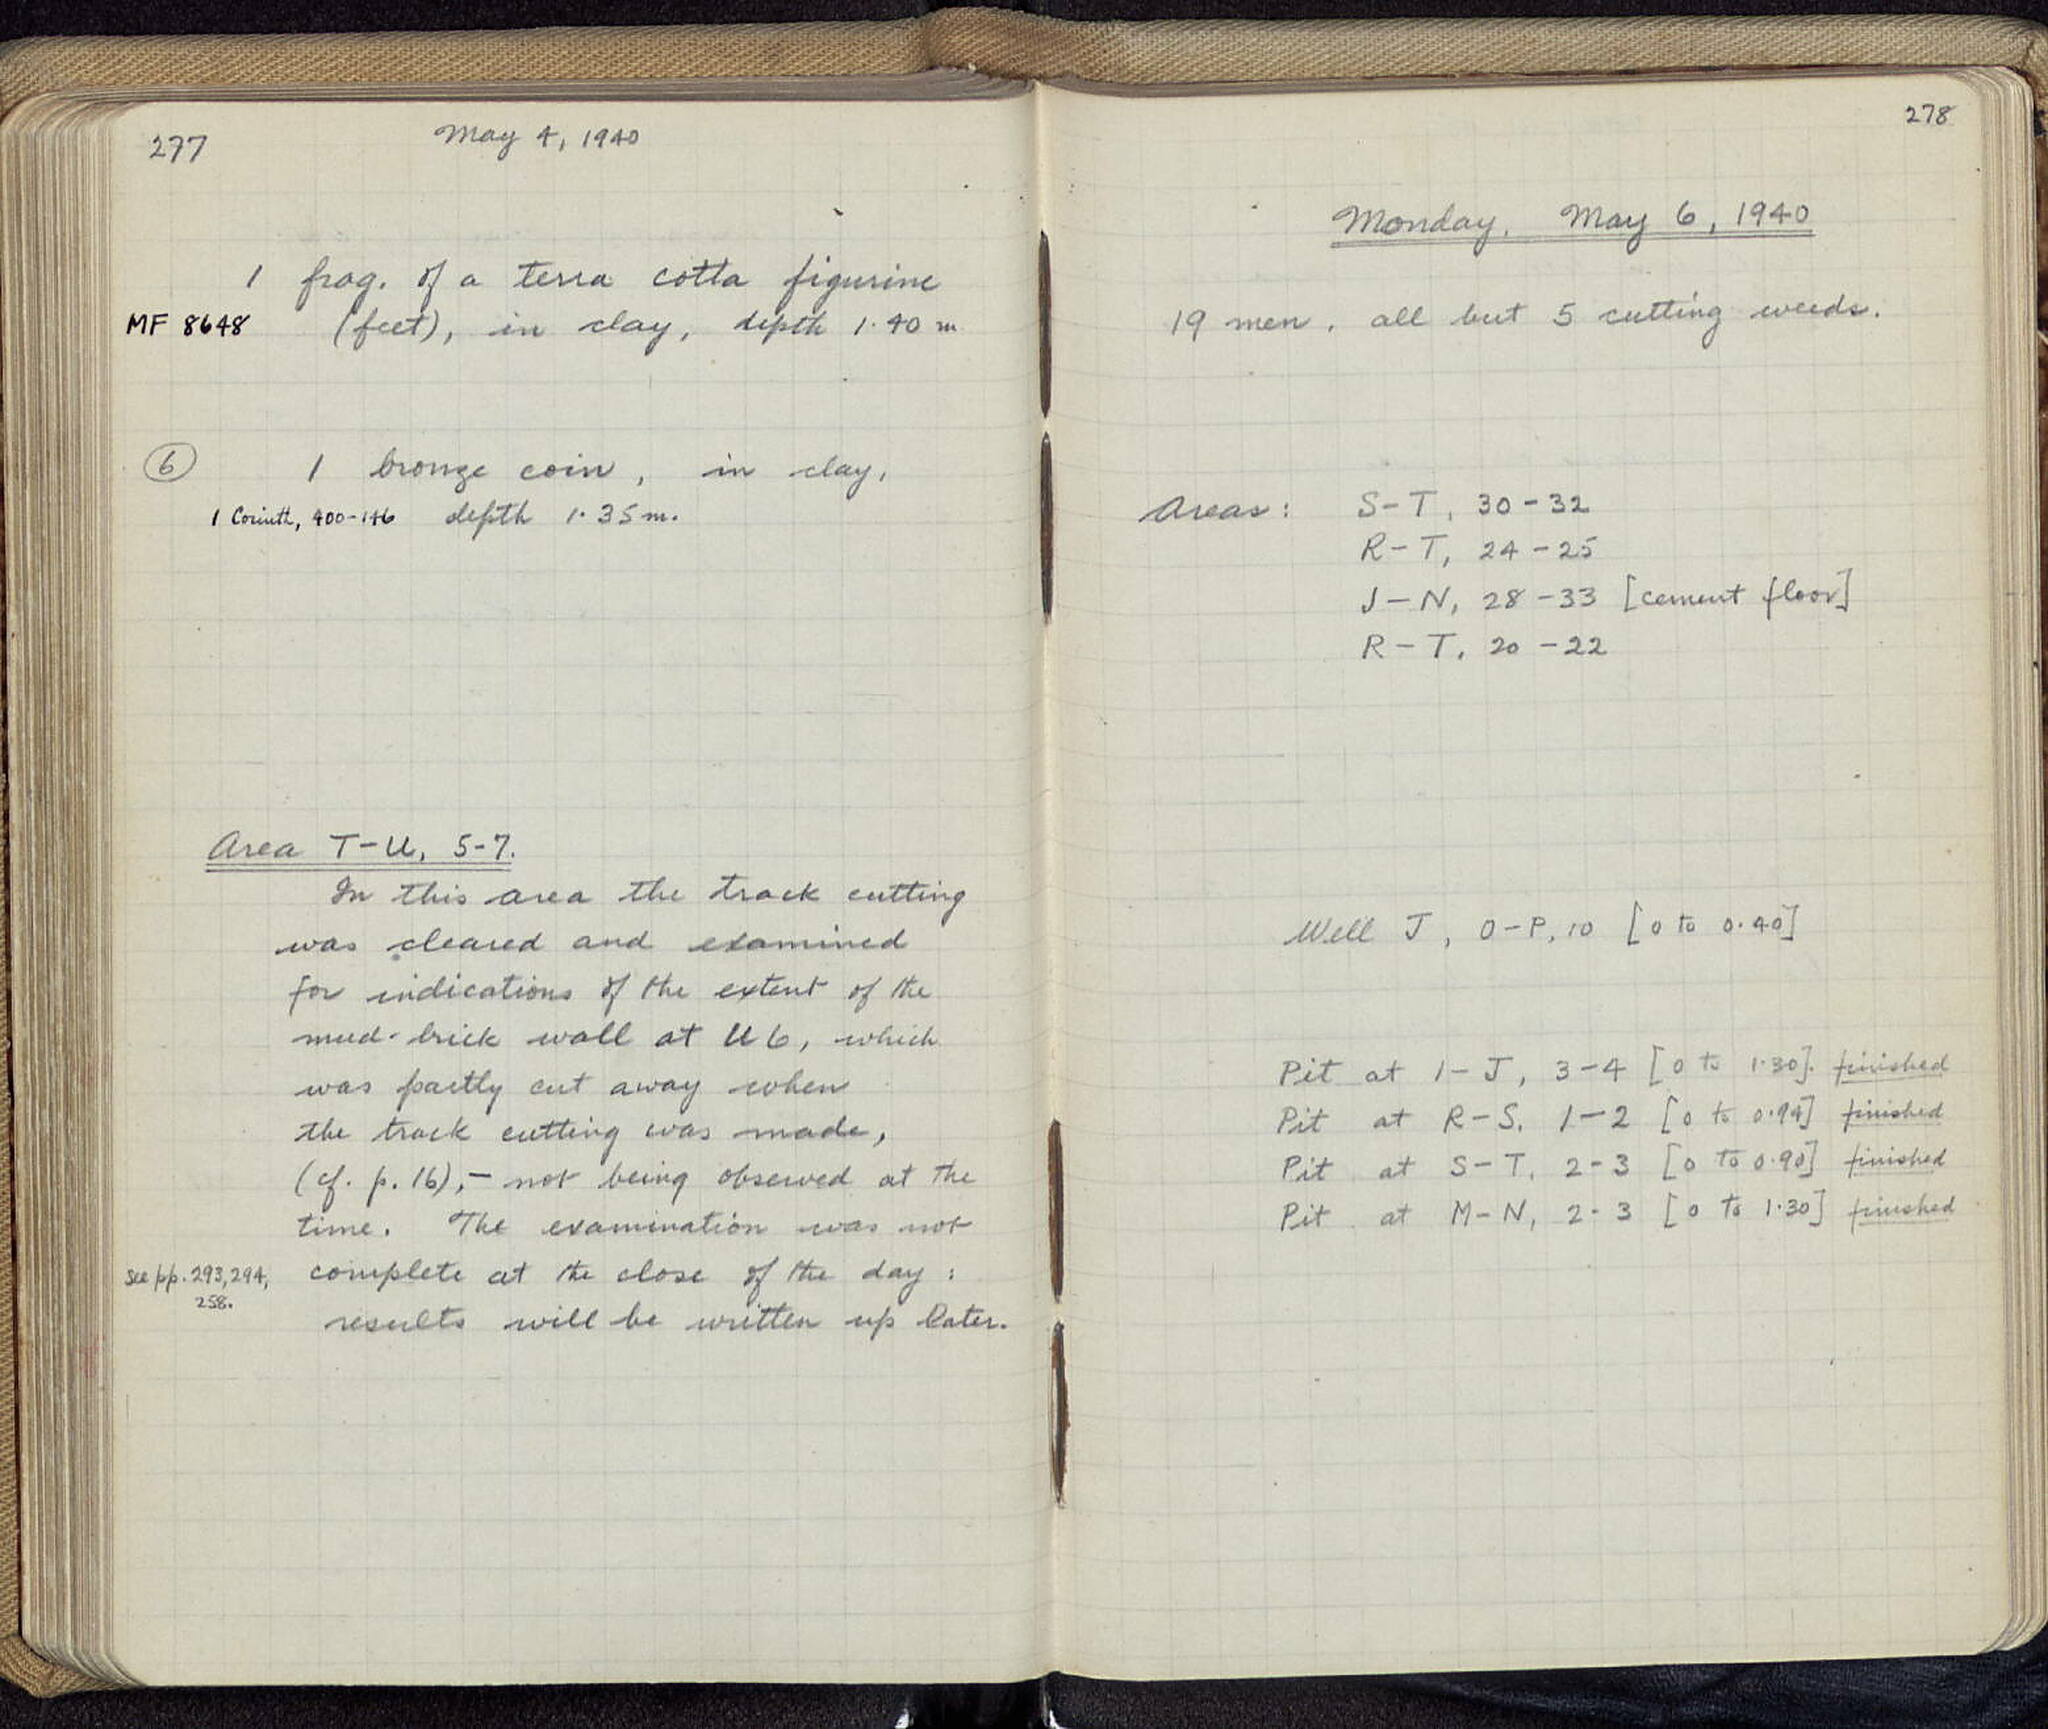 277
May 4, 1940
1 frag. of a terra cotta figurine
MF 8648 (feet), in clay, depth 1.40 m
6 1 bronze coin, in clay,
1 Corinth, 400-146 depth 1.35 m.
Area T-U, 5-7.
In this area the track cutting
was cleared and examined
for indications of the extent of the
mud-brick wall at U6, which
was partly cut away when
the track cutting was made,
(cf. p. 16),- not being observed at the
time. The examination was not
see pp. 293, 294, complete at the close of the day:
258.
results will be written up later.
278
Monday, May 6, 1940
19 men, all but 5 cutting weeds.
Areas: S-T, 30-32
R-T, 24-25
J-N, 28-33 [cement floor]
R-T, 20-22
Well J, O-P, 10 [0 to 0.40]
Pit at I-J, 3-4 [0 to 1.30]. finished
Pit at R-S, 1-2 [0 to 0.94] finished
Pit at S-T, 2-3 [0 to 0.90] finished
Pit at M-N, 2-3 [0 to 1.30] finished